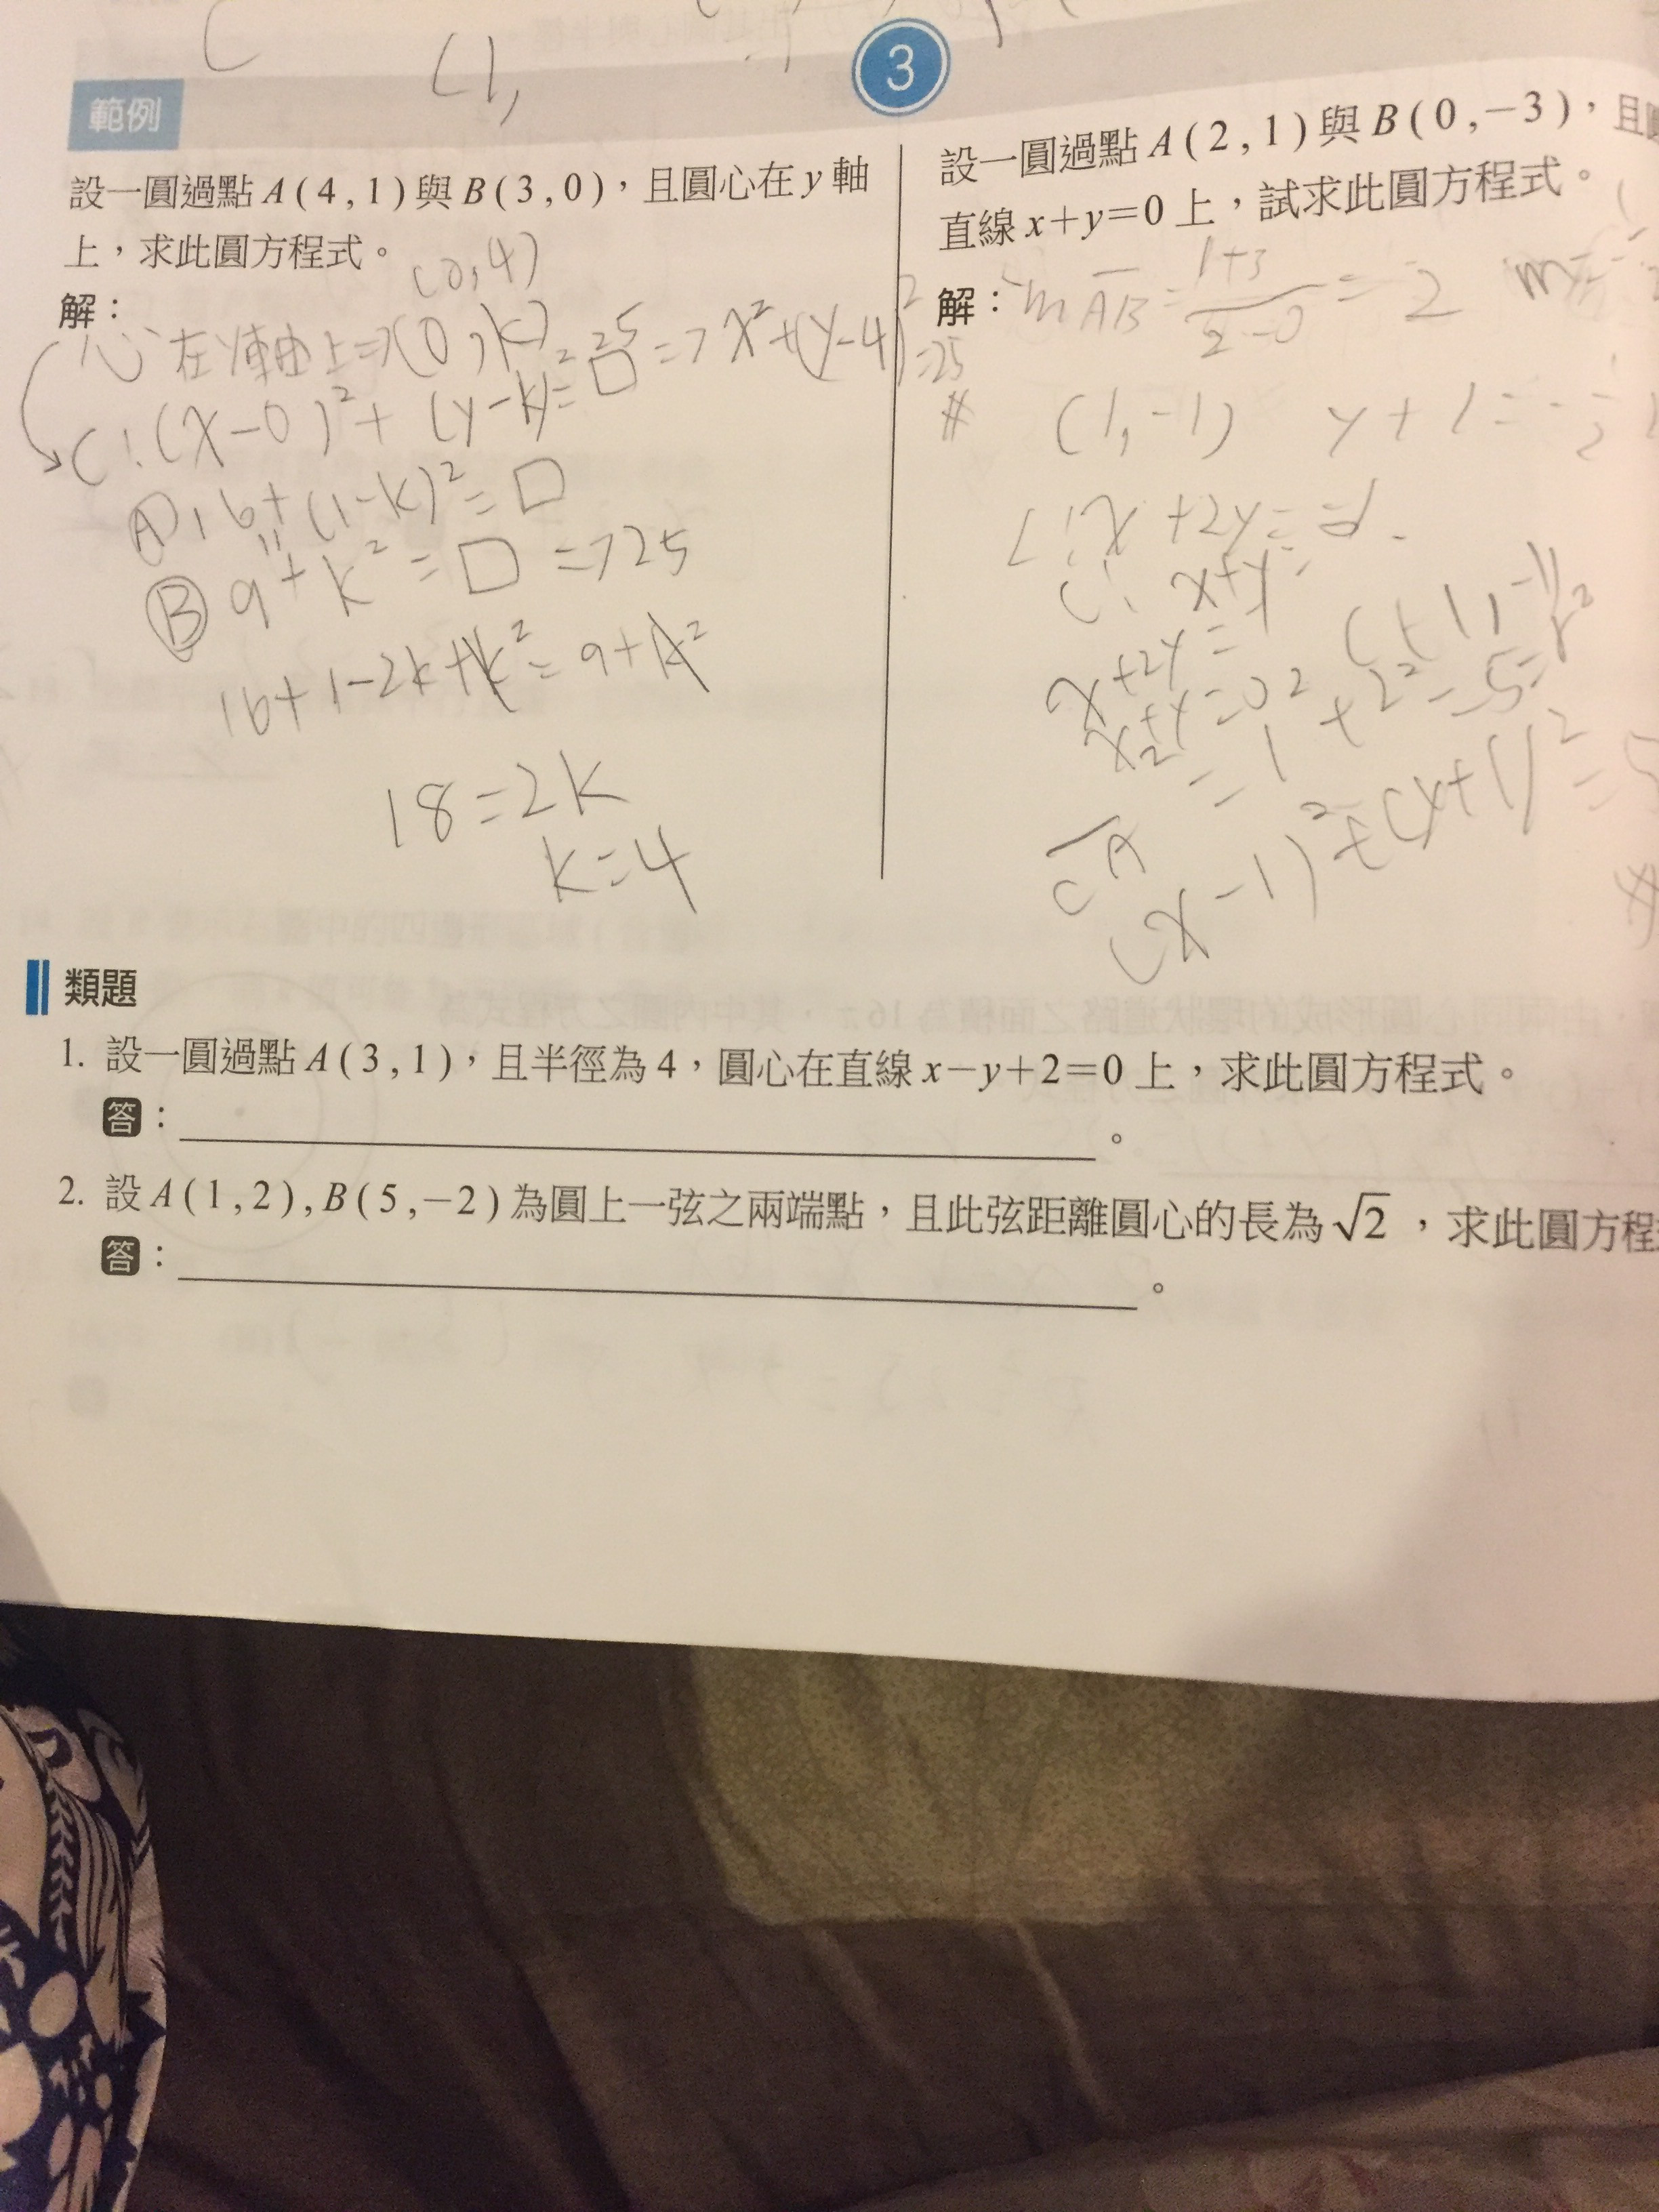 3
範例
(1,
設一圓過點 A ( 4 , 1 ) 與 B ( 3 , 0 ),且圓心在 y 軸
上,求此圓方程式。
(0,4)
解:
心在y軸上⇒(0,k)
C:(x-0)²+(y-k)²=□ 25 ⇒x²+(y-4)²=25
#
Ⓐ16+(1-k)²=□
Ⓑ9+k²=□ ⇒25
16+1-2k+k²=9+k²
18=2k
k=4
設一圓過點 A ( 2 , 1 ) 與 B ( 0 , −3 ),且
直線 x+y=0 上,試求此圓方程式。
解:m AB = 1+3 / 2-0 = 2
(1,-1) y+1=-1/2
L:x+2y=
C: x+y=
x+2y=-1
x+y=0
(1,-1)
CA² = 1²+2²=5=r²
(x-1)²+(y+1)²=5
#
類題
1. 設一圓過點 A ( 3 , 1 ),且半徑為 4,圓心在直線 x−y+2=0 上,求此圓方程式。
答:。
2. 設 A ( 1 , 2 ) , B ( 5 , −2 ) 為圓上一弦之兩端點,且此弦距離圓心的長為 √2 ,求此圓方程
答:。